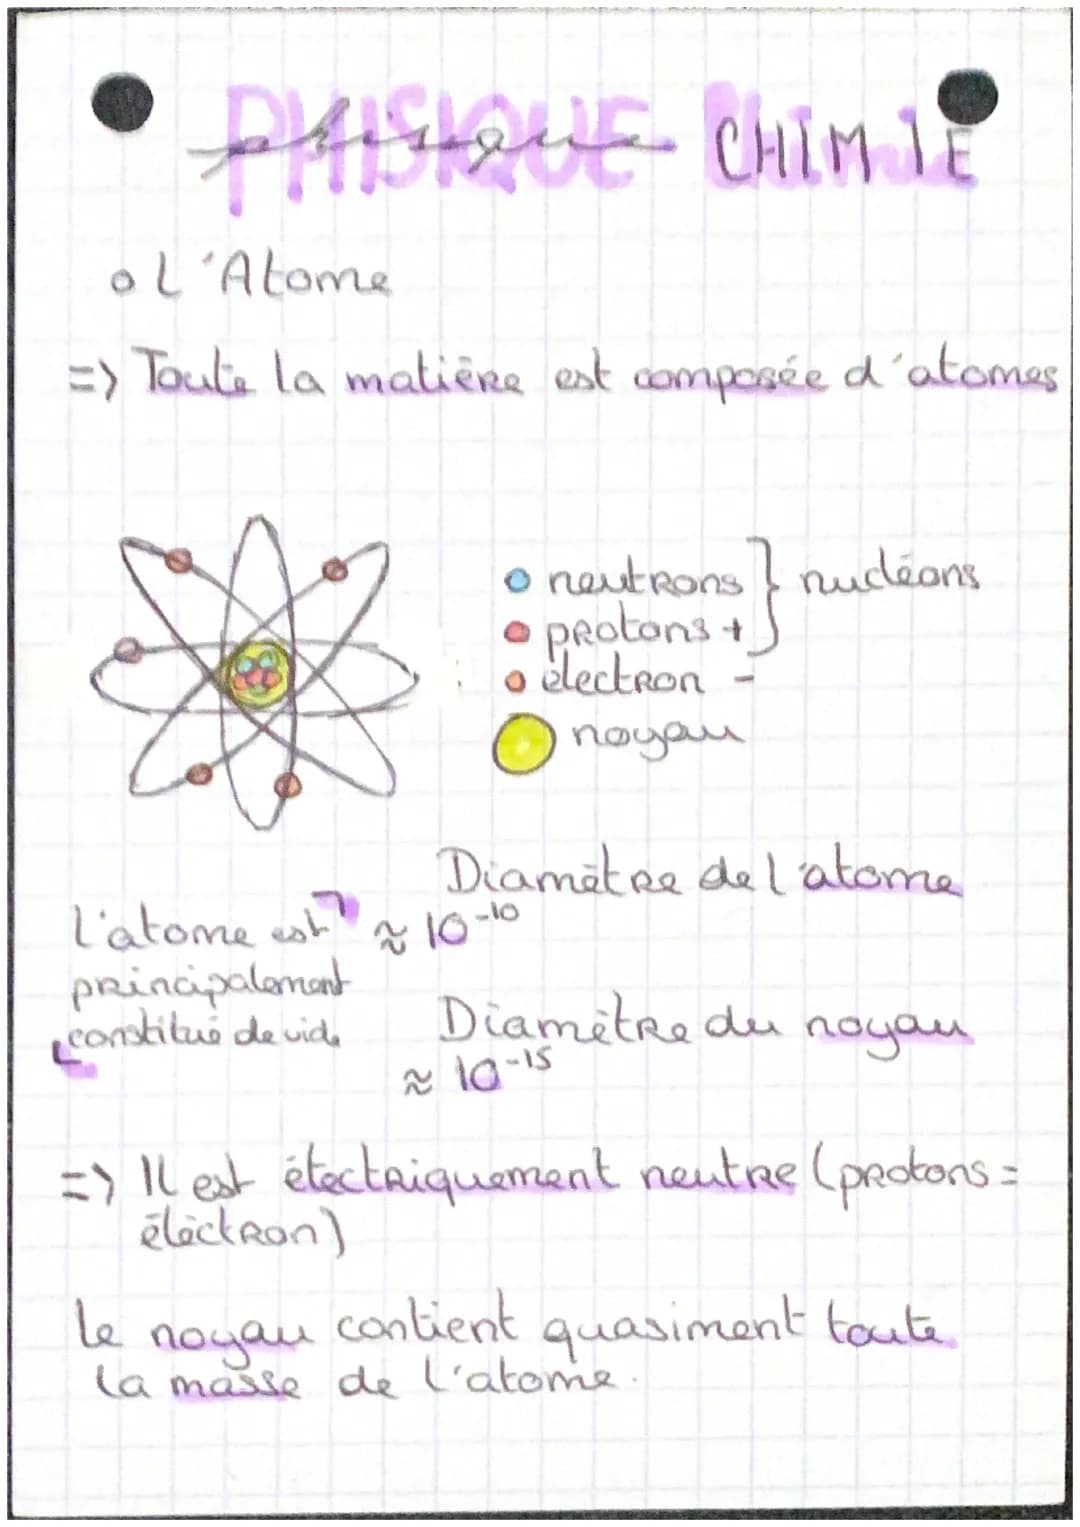 PHISIQUE Chimie
phisique CHIMIE
o L'Atome
=> Toute la matière est composée d'atomes
neutrons } nucléons
protons +
électron -
noyau
Diamètre de l'atome
≈ 10-10
l'atome est
principalement
constitué de vide
Diamètre du noyau
≈ 10-15
=> Il est électriquement neutre (protons =
électron)
Le noyau contient quasiment toute
la masse de l'atome.